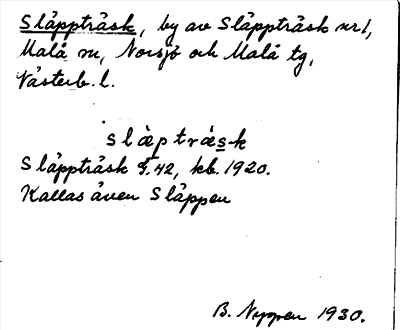 Släppträsk, by av Släppträsk nr 1,
Malå sn, Norsjö och Malå tg,
Västerb. l.
slæptræsk
Släppträsk §. 42, kb. 1920.
Kallas även Släppen
B. Nyppen 1930.